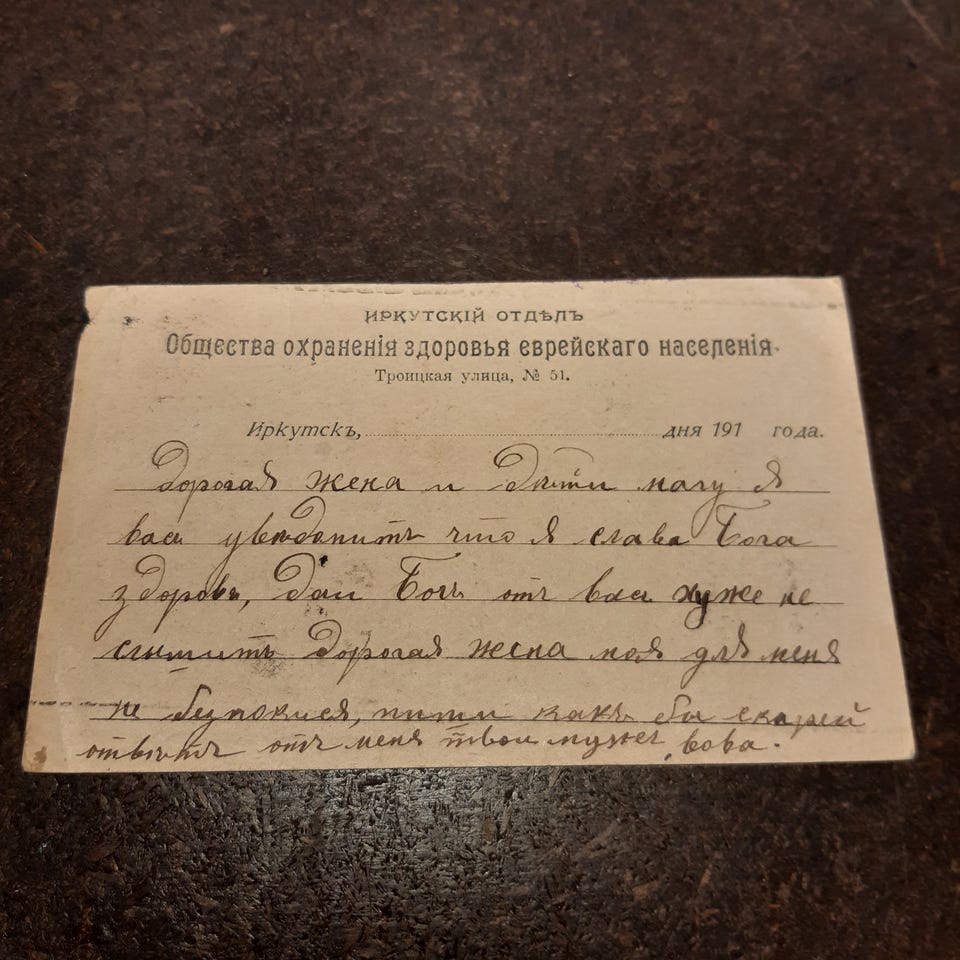 ИРКУТСКІЙ ОТДѢЛЪ
Общества охраненія здоровья еврейскаго населенія.
Троицкая улица, № 51.
Иркутскъ, дня 191 года.
Дорогая жена и Дѣти магу я
васъ увѣдомитъ что я слава Бога
здоровъ, Даи Богъ отъ васъ хуже не
слышитъ Дорогая жена моя для меня
не безпокися, пиши какъ бы скарей
отвѣтъ отъ меня твои мужъ, вова.